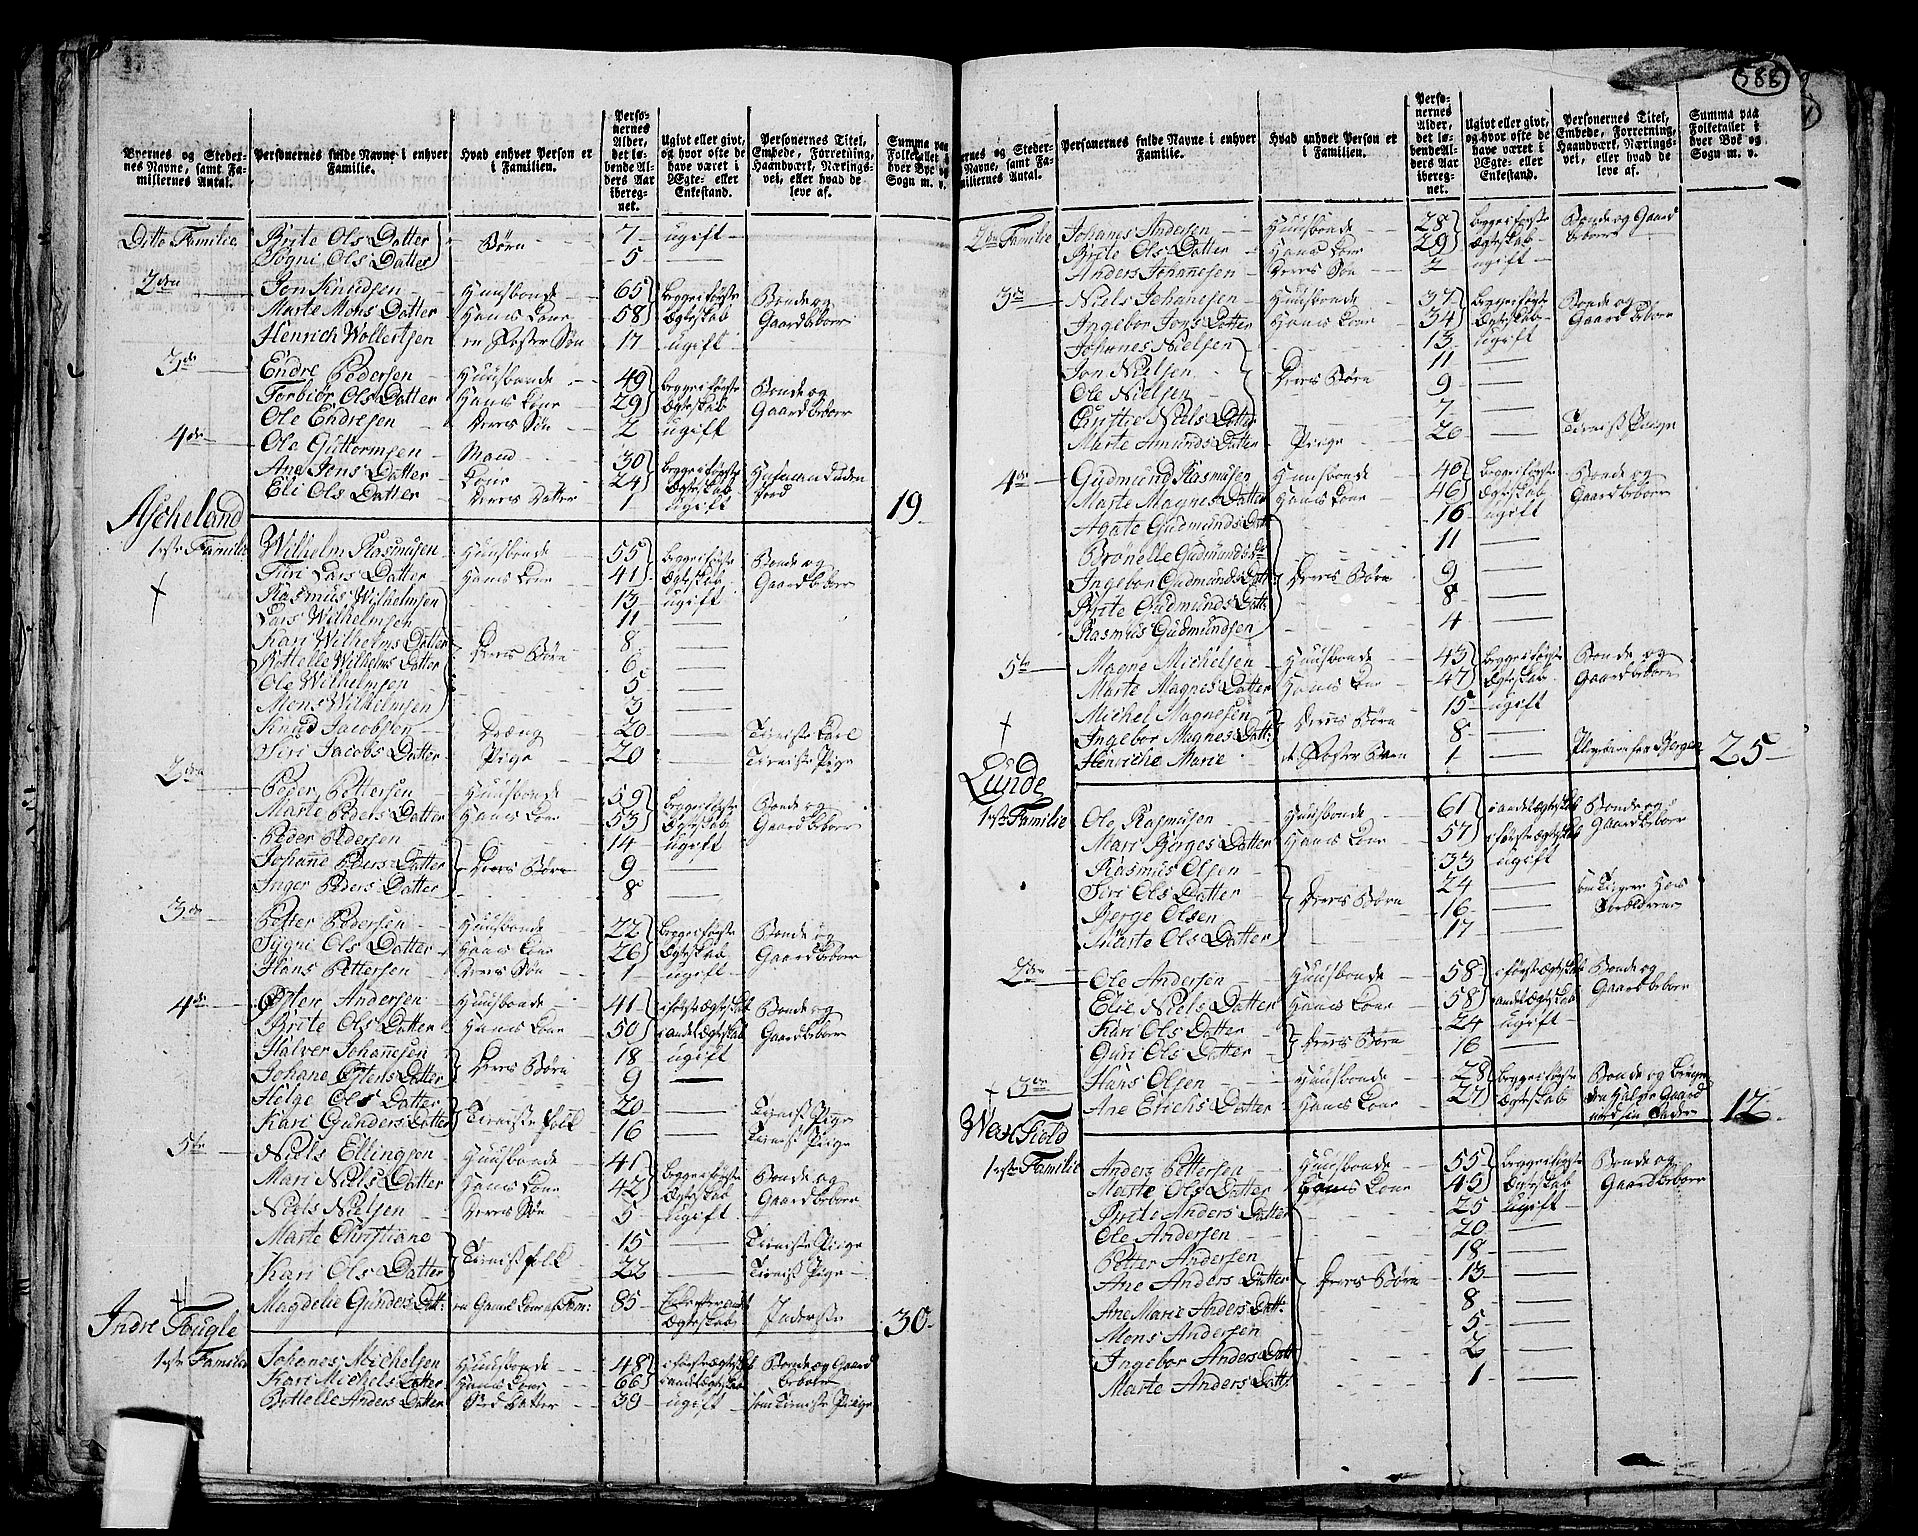 Byernes og Stedernes Navne, samt Familiernes Antal. | Personernes fulde Navne i enhver Familie. | Hvad enhver Person er i Familien. | Personernes Alder, det løbende Alders Aar iberegnet. | Ugivt eller givt, og hvor ofte de have været i Ægte- eller Enkestand. | Personernes Titel, Embede, Forretning, Haandværk, Næringsvei, eller hvad de leve af. | Summa paa Folketallet i hver Bye og Sogn m. v.
Ditto Familie | Brite Ols Datter | Børn | 7 | ugift
Sogni Ols Datter | 5 | —
2den | Jon Knudsen | Huusbonde | 65 | begge i første | Bonde og
Marte Mons Datter | Hans Kone | 58 | Ægteskab | Gaardbeboer
Henrich Wollertsen | en Foster Søn | 17 | ugift
3de | Endre Pedersen | Huusbonde | 49 | begge i første | Bonde og
Torbiør Ols Datter | Hans Kone | 29 | Ægteskab | Gaardbeboer
Ole Endresen | Deres Søn | 2 | ugift
4de | Ole Guttormsen | Mand | 30 | begge i første
Ane Jons Datter | Kone | 24 | Ægteskab
Eli Ols Datter | Deres Datter | 1 | ugift | 19
Ascheland
1ste Familie | Wilhelm Rasmusen | Huusbonde | 55 | begge i første | Bonde og
Turi Lars Datter | Hans Kone | 41 | Ægteskab | Gaardbeboer
Rasmus Wilhelmsen | 13 | ugift
Lars Wilhelmsen | 11 | —
Kari Wilhelms Datter | Deres Børn | 8 | —
Bottelle Wilhelms Datter | 6 | —
Ole Wilhelmsen | 5 | —
Mons Wilhelmsen | 3 | —
Knud Jacobsen | Dræng | 20 | — | Tieniste Karl
Siri Jacobs Datter | Pige | 20 | — | Tieniste Pige
2den | Peder Pettersen | Huusbonde | 59 | begge i første | Bonde og
Marte Peders Datter | Hans Kone | 53 | Ægteskab | Gaardbeboer
Peder Pedersen | 14 | ugift
Johanne Peders Datter | Deres Børn | 9 | —
Inger Peders Datter | 8 | —
3de | Petter Pedersen | Huusbonde | 22 | begge i første | Bonde og
Sygni Ols Datter | Hans Kone | 26 | Ægteskab | Gaardbeboer
Hans Pettersen | Deres Søn | 1 | ugift
4de | Østen Andersen | Huusbonde | 41 | i første Ægteskab | Bonde og
Brite Ols Datter | Hans Kone | 50 | i andet Ægteskab | Gaardbeboer
Halver Johannesen | Deres Børn | 18 | ugift
Johane Østens Datter | 9 | —
Helge Ols Datter | Tieniste folk | 20 | — | Tieniste Pige
Kari Gunders Datter | 16 | — | Tieniste Pige
5te | Niels Ellingsen | Huusbonde | 41 | begge i første | Bonde og
Mari Niels Datter | Hans Kone | 42 | Ægteskab | Gaardbeboer
Niels Nielsen | Deres Søn | 5 | ugift
Marte Christiane | Tieniste folk | 15 | — | Tieniste Pige
Kari Ols Datter | 22 | — | Tieniste Pige
Magdelie Gunders Datt: | en Gamel Kone af Fam: | 85 | Ægteskab | 30
Indre Fougle
1ste Familie | Johanes Michelsen | Huusbonde | 48 | i første Ægteskab | Bonde og Gaard
Kari Michels Datter | Hans Kone | 66 | i andet Ægteskab | beboer
Bottelle Anders Datter | Sted Datter | 39 | ugift | som Tieniste Pige
588
Byernes og Stedernes Navne, samt Familiernes Antal. | Personernes fulde Navne i enhver Familie. | Hvad enhver Person er i Familien. | Personernes Alder, det løbende Alders Aar iberegnet. | Ugivt eller givt, og hvor ofte de have været i Ægte- eller Enkestand. | Personernes Titel, Embede, Forretning, Haandværk, Næringsvei, eller hvad de leve af. | Summa paa Folketallet i hver Bye og Sogn m. v.
2den Familie | Johanes Andersen | Huusbonde | 28 | begge i første | Bonde og Gaard
Brite Ols Datter | Hans Kone | 29 | Ægteskab | beboer
Anders Johanesen | Deres Søn | 2 | ugift
3de | Niels Johanesen | Huusbonde | 37 | begge i første | Bonde og
Ingebor Jons Datter | Hans Kone | 34 | Ægteskab | Gaardbeboer
Johanes Nielsen | 13 | ugift
Jon Nielsen | Deres Børn | 11 | —
Ole Nielsen | 9 | —
Christie Niels Datter | 7 | —
Marte Amunds Datter | Pige | 20 | — | Tieniste Pige
4de | Gudmund Rasmusen | Huusbonde | 40 | begge i første | Bonde og
Marte Magnes Datter | Hans Kone | 46 | Ægteskab | Gaardbeboer
Agate Gudmunds Datt: | 16 | ugift
Brønelle Gudmunds Da: | 11 | —
Ingebor Gudmunds Datt: | Deres Børn | 9 | —
Brite Gudmunds Datt: | 8 | —
Rasmus Gudmundsen | 4 | —
5te | Magne Michelsen | Huusbonde | 43 | begge i første | Bonde og
Marte Magnes Datter | Hans Kone | 47 | Ægteskab | Gaardbeboer
Michel Magnesen | Deres Børn | 15 | ugift
Ingebor Magnes Datt: | 8 | —
Henriche Marie | et Foster Barn | 1 | — | Bergen | 25
Lunde
1ste Familie | Ole Rasmusen | Huusbonde | 61 | i andet Ægteskab | Bonde og
Mari Børges Datter | Hans Kone | 57 | i første Ægteskab | Gaardbeboer
Rasmus Olsen | 33 | ugift
Siri Ols Datter | Deres Børn | 24 | — | som Tienere hos
Børge Olsen | 16 | — | Forældrene
Marte Ols Datter | 17 | —
2den | Ole Andersen | Huusbonde | 58 | i første Ægteskab | Bonde og
Elie Niels Datter | Hans Kone | 58 | i andet Ægteskab | Gaardbeboer
Kari Ols Datter | Deres Børn | 24 | ugift
Guri Ols Datter | 16 | —
3de | Hans Olsen | Huusbonde | 28 | begge i første | Bonde og Bruger
Ane Erichs Datter | Hans Kone | 27 | Ægteskab | den halve Gaard med sin Fader | 12
West Field
1ste Familie | Anders Pettersen | Huusbonde | 55 | begge i første | Bonde og
Marte Ols Datter | Hans Kone | 45 | Ægteskab | Gaardbeboer
Brite Anders Datter | 25 | ugift
Ole Andersen | 20 | —
Petter Andersen | 18 | —
Ane Anders Datter | Deres Børn | 13 | —
Ane Marie Anders Datt: | 8 | —
Mons Andersen | 5 | —
Ingebor Anders Datt: | 2 | —
Marte Anders Datt: | 1 | —